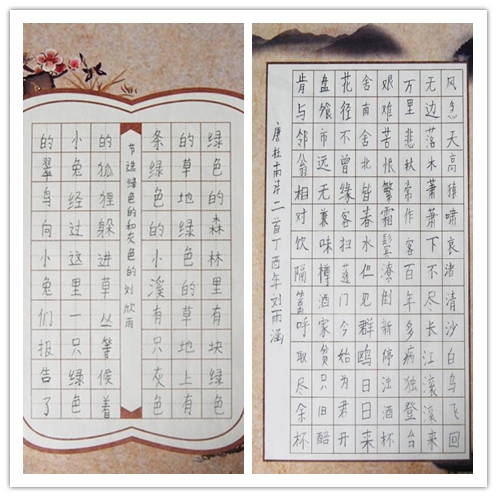 绿色的森林里有块绿色
的草地绿色的草地上有
条绿色的小溪有只灰色
节选绿色的和灰色的 刘欣雨
的狐狸躲进草丛等候着
小兔经过这里一只绿色
的翠鸟向小兔们报告了
风急天高猿啸哀渚清沙白鸟飞回
无边落木萧萧下不尽长江滚滚来
万里悲秋常作客百年多病独登台
艰难苦恨繁霜鬓潦倒新停浊酒杯
舍南舍北皆春水但见群鸥日日来
花径不曾缘客扫蓬门今始为君开
盘飧市远无兼味樽酒家贫只旧醅
肯与邻翁相对饮隔篱呼取尽余杯
唐杜甫诗二首丁酉年刘雨涵